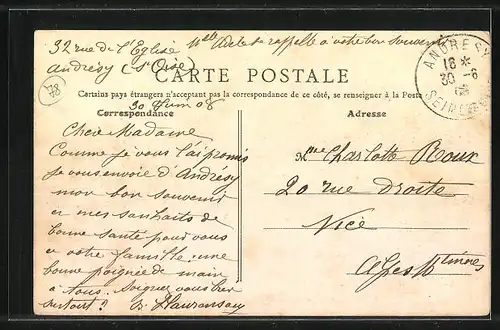 32 rue de l'Eglise
Andrésy (S et Oise)
Melle Adèle se rappelle à votre bon souvenir
ANDRESY
18 *
30 -6
08
SEINE-ET-OISE
78
CARTE POSTALE
Certains pays étrangers n'acceptant pas la correspondance de ce côté, se renseigner à la Poste
30 Juin 08
Correspondance
Adresse
Chère Madame
Comme je vous l'ai promis
je vous envoie d'Andrésy
mon bon souvenir
et mes souhaits de
bonne santé pour vous
et votre famille. une
bonne poignée de main
à tous. Soignez vous bien
surtout?
Charlotte Roux
20 rue droite
Nice
Alpes Mmes